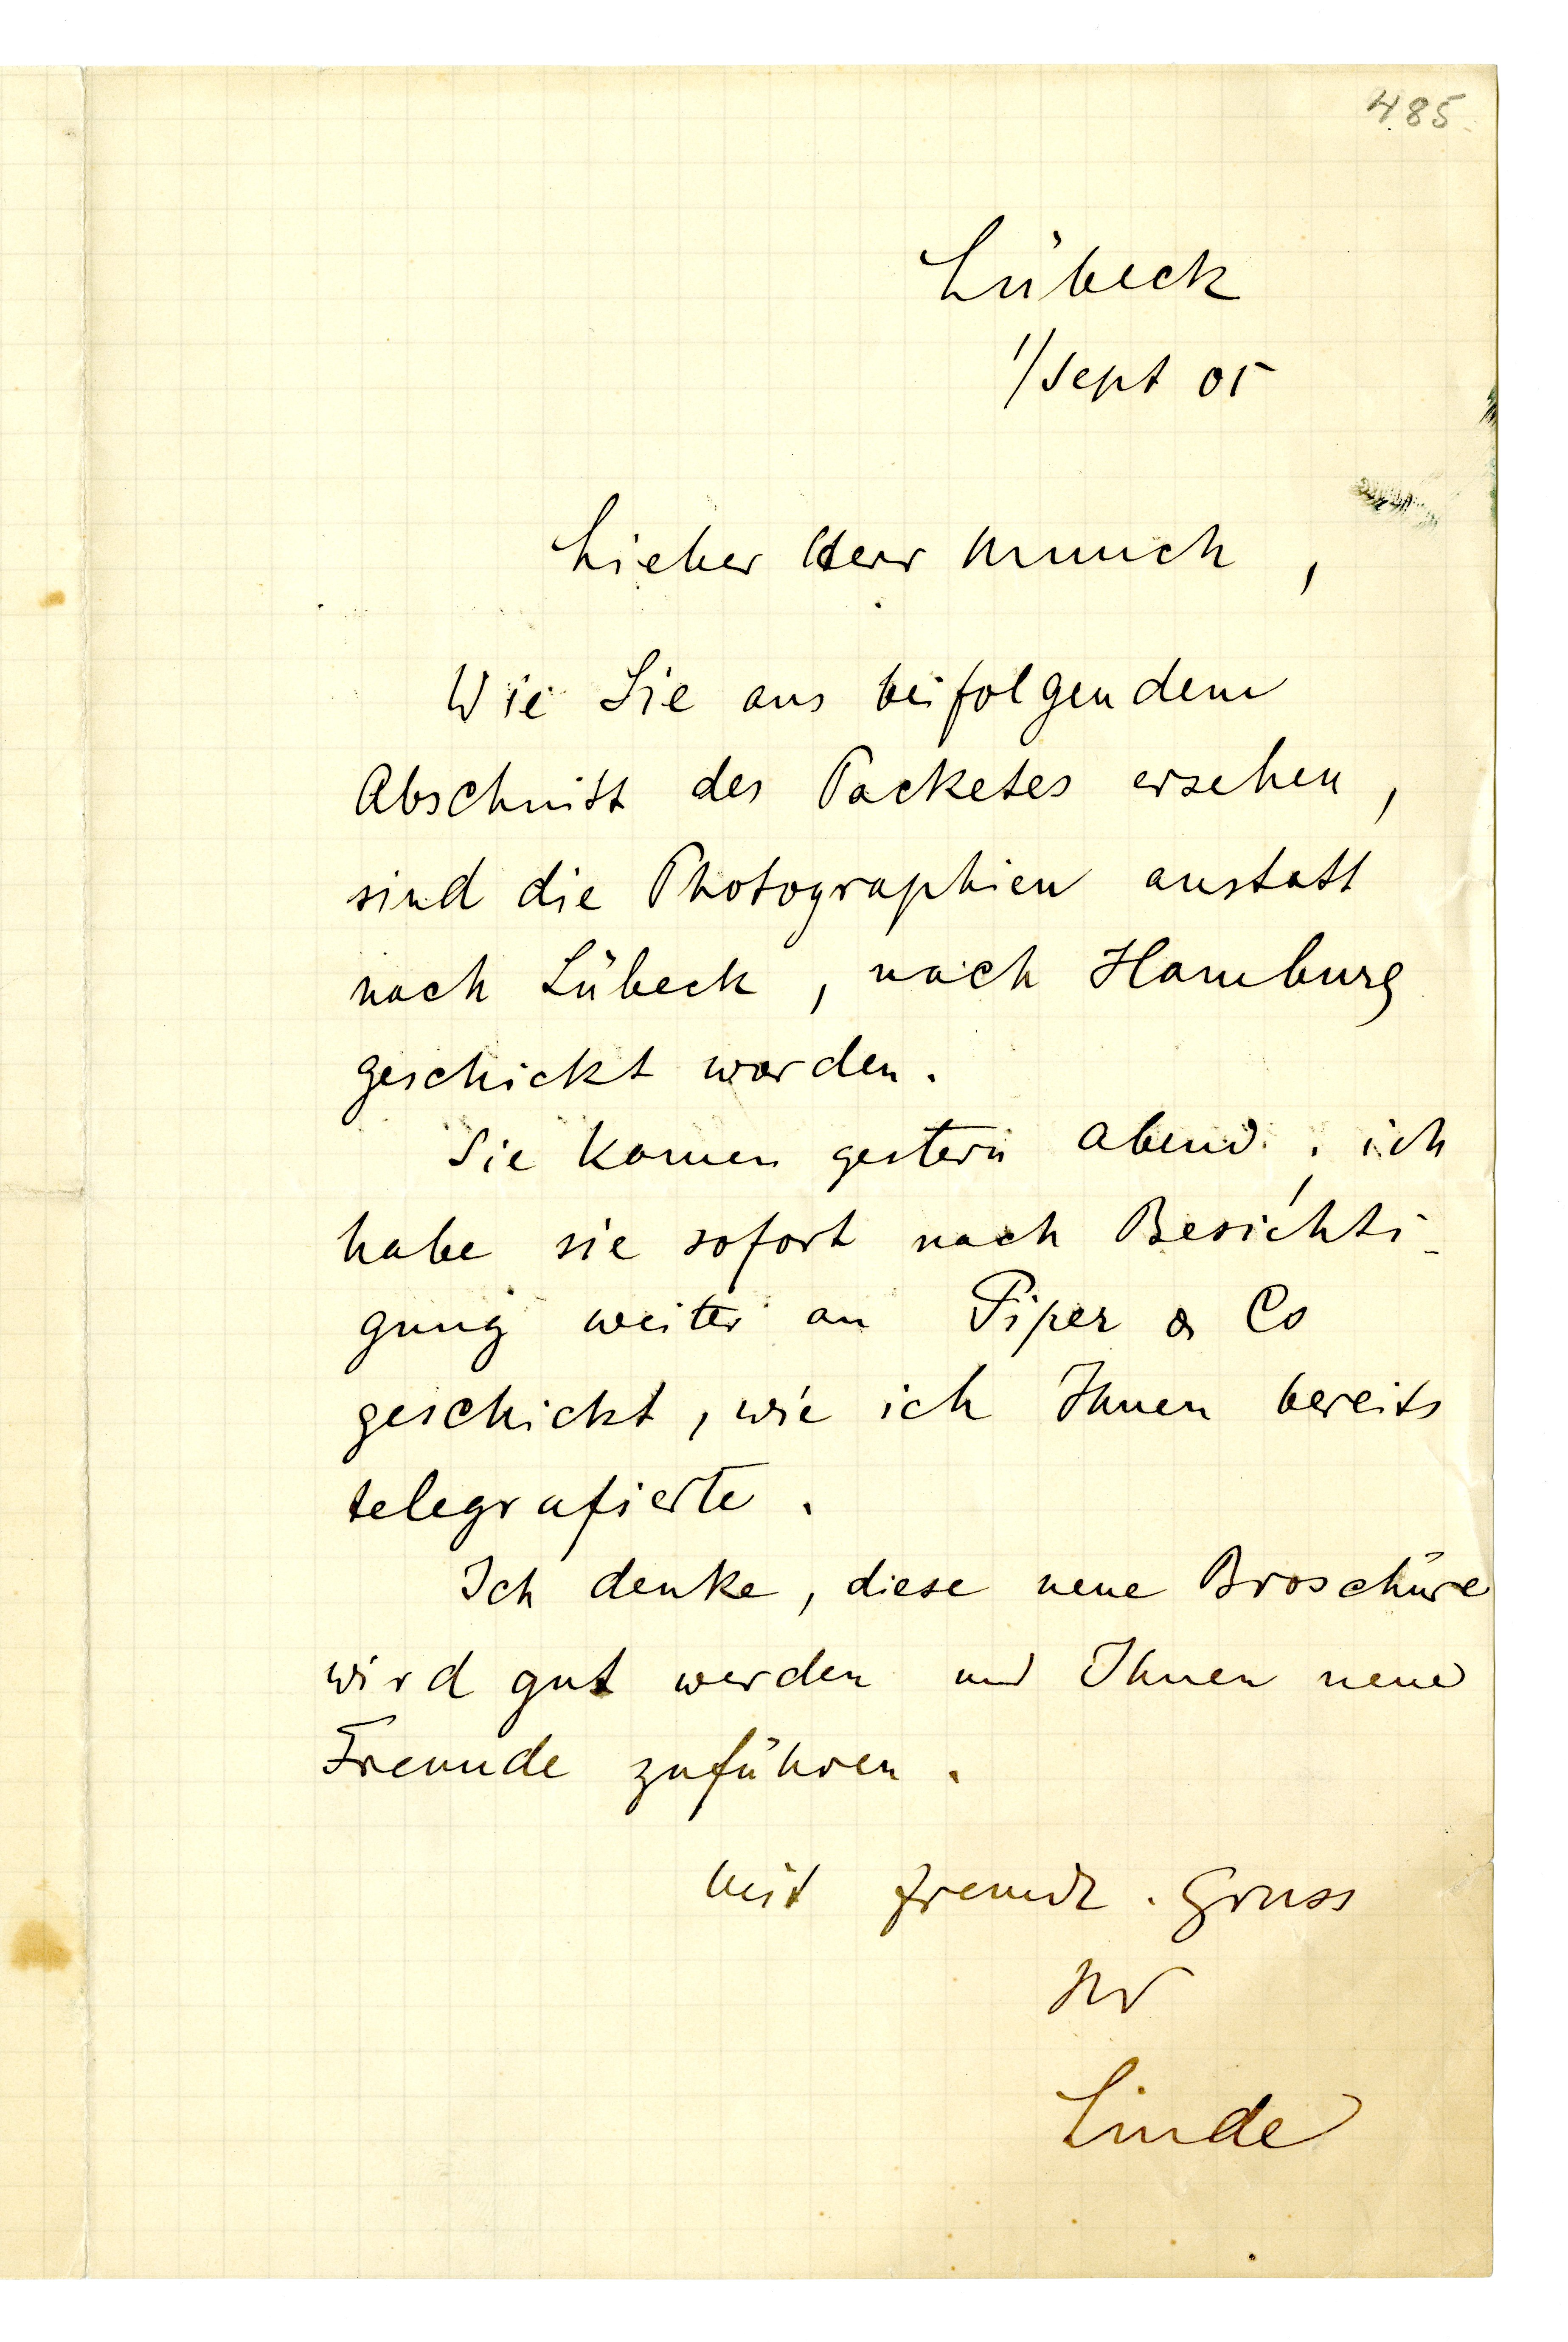 485
Lübeck
1/Sept 05
Lieber Herr Munch,
Wie Sie aus beifolgendem
Abschnitt des Packetes ersehen,
sind die Photographien anstatt
nach Lübeck, nach Hamburg
geschickt worden.
Sie kamen gestern abend; ich
habe sie sofort nach Besichti-
gung weiter an Piper & Co
geschickt, wie ich Ihnen bereits
telegrafierte.
Ich denke, diese neue Broschüre
wird gut werden und Ihnen neue
Freunde zuführen.
Mit freundl. Gruss
Ihr
Linde